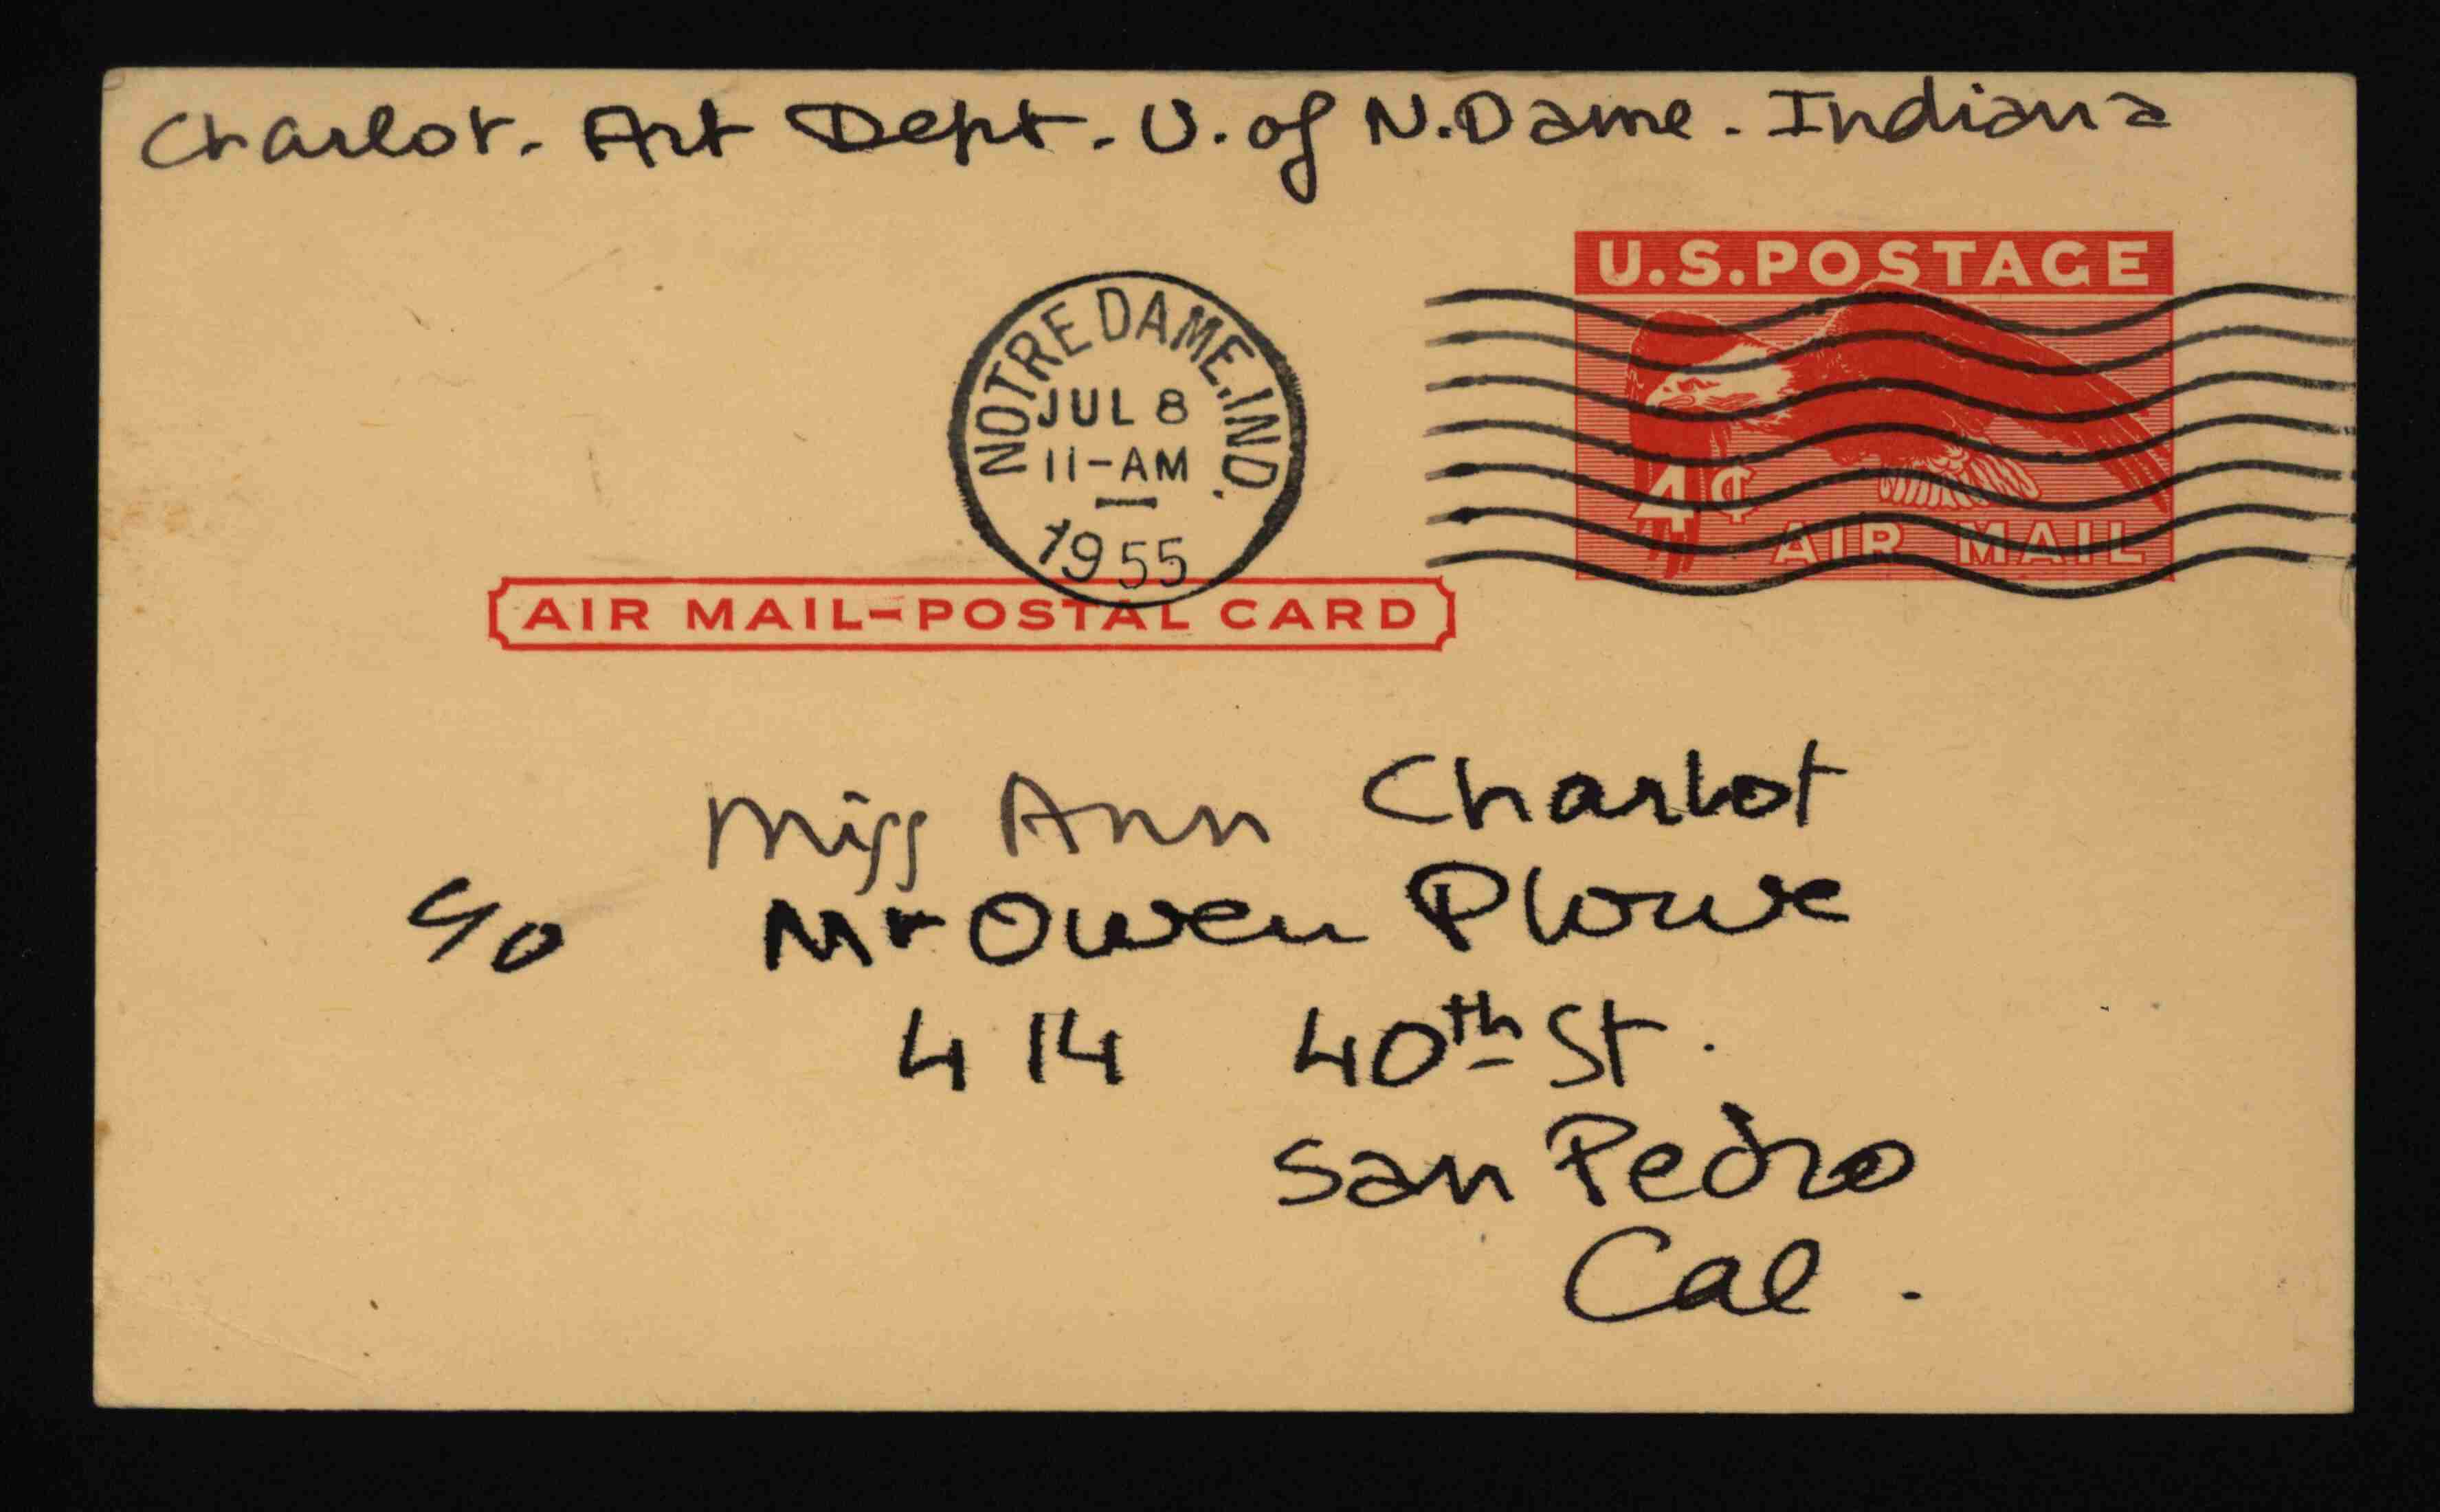 Charlot. Art Dept. U. of N. Dame. Indiana
U.S. POSTAGE
NOTRE DAME, IND.
JUL 8
11-AM
1955
4¢ AIR MAIL
AIR MAIL-POSTAL CARD
Miss Ann Charlot
c/o Mr Owen Plowe
414 40th St.
San Pedro
Cal.